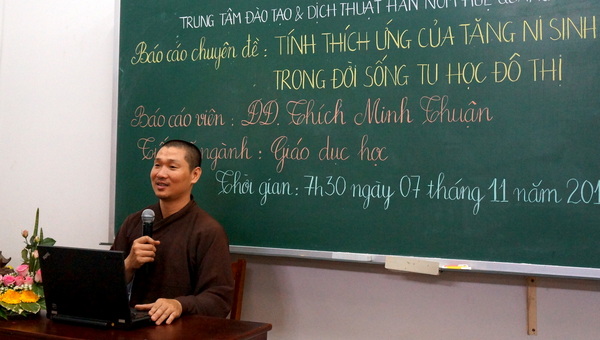 TRUNG TÂM ĐÀO TẠO & DỊCH THUẬT HÁN NÔM HUỆ QUANG
BÁO CÁO CHUYÊN ĐỀ : TÍNH THÍCH ỨNG CỦA TĂNG NI SINH
TRONG ĐỜI SỐNG TU HỌC ĐÔ THỊ
Báo cáo viên : ĐĐ. Thích Minh Thuận
ngành : Giáo dục học
Thời gian : 7h30 ngày 07 tháng 11 năm 201